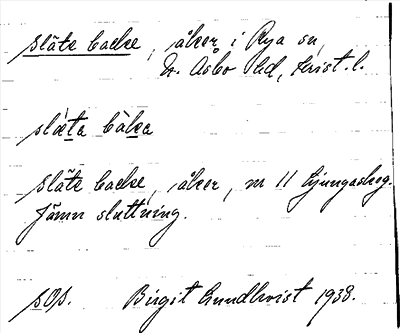 släte backe, åker i Rya sn,
N. Åsbo hd, Krist. l.
slæta bàka
släte backe, åker, nr 11 Ljungaskog.
Jämn sluttning.
sOs. Birgit Lundkvist 1938.